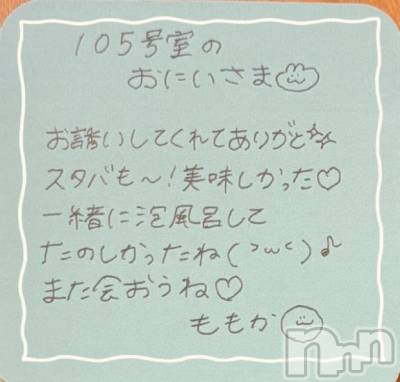 105号室の
おにいさま
お誘いしてくれてありがと☆☆
スタバも〜!美味しかった♡
一緒に泡風呂して
たのしかったね(˃ω˂)♪
また会おうね♡
ももか
nnn